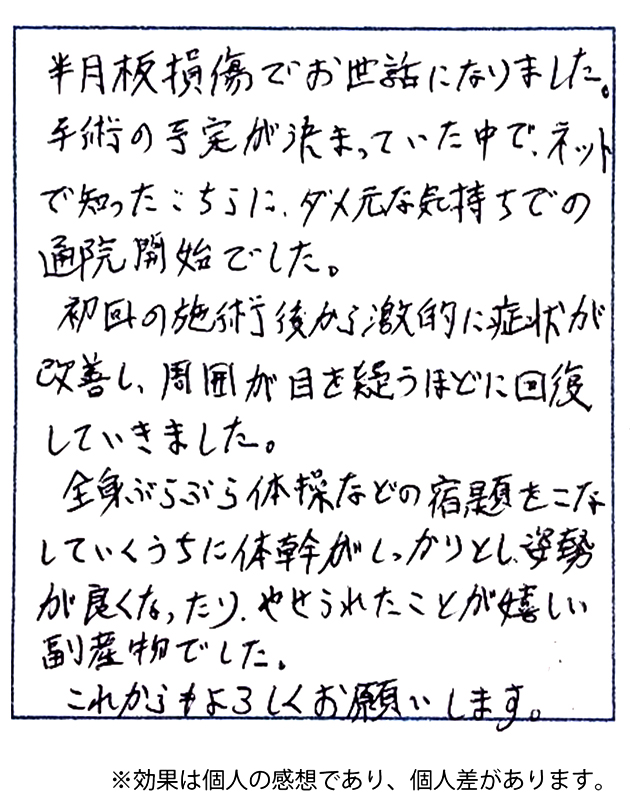 半月板損傷でお世話になりました。
手術の予定が決まっていた中で、ネット
で知ったこちらに、ダメ元な気持ちでの
通院開始でした。
初回の施術後から激的に症状が
改善し、周囲が目を疑うほどに回復
していきました。
全身ぶらぶら体操などの宿題をこな
していくうちに体幹がしっかりとし、姿勢
が良くなったり、やせられたことが嬉しい
副産物でした。
これからもよろしくお願いします。
※効果は個人の感想であり、個人差があります。